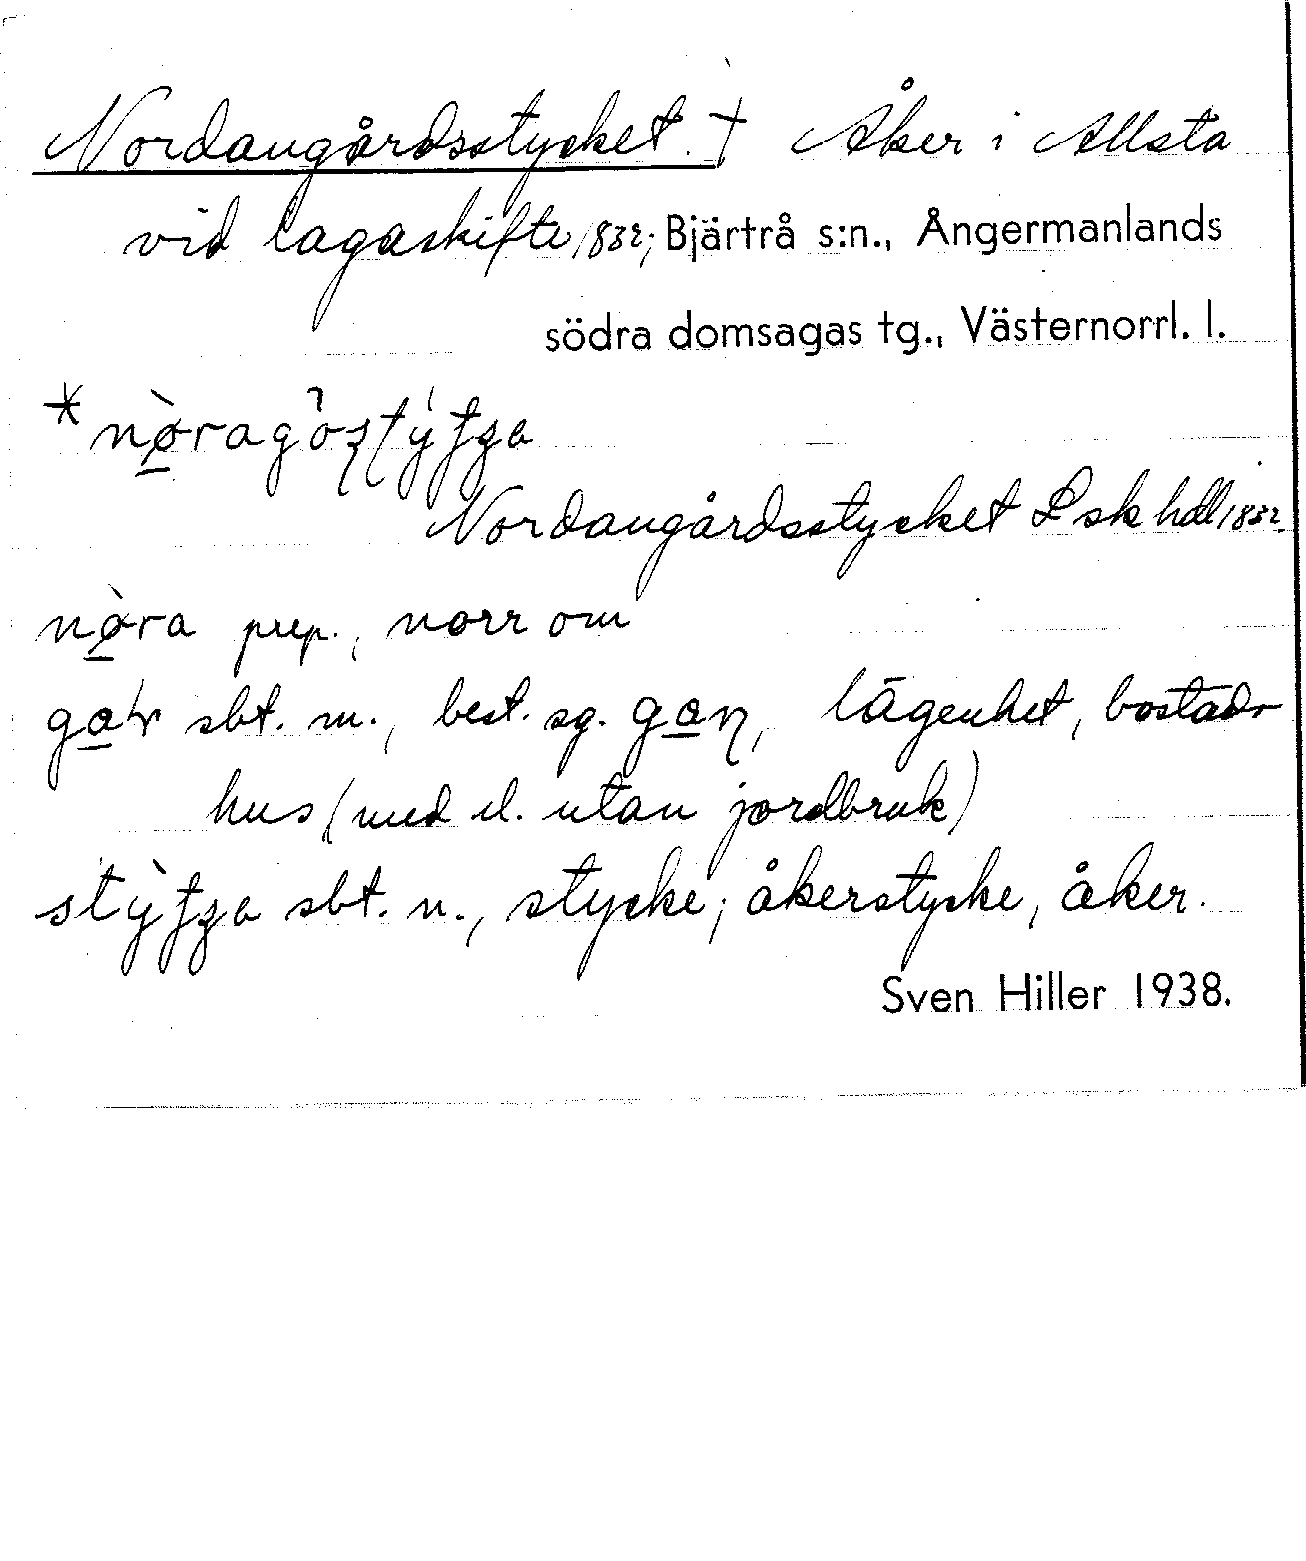 Nordangårdsstycket. † Åker i Allsta
vid lagaskifte 1832; Bjärtrå s:n., Ångermanlands
södra domsagas tg., Västernorrl. l.
Nordangårdsstycket Lsk hdl 1832.
nø̀ra prep., norr om
sbt. m., best. sg. lägenhet, bostads-
hus (med el. utan jordbruk)
sbt. n., stycke; åkerstycke, åker.
Sven Hiller 1938.